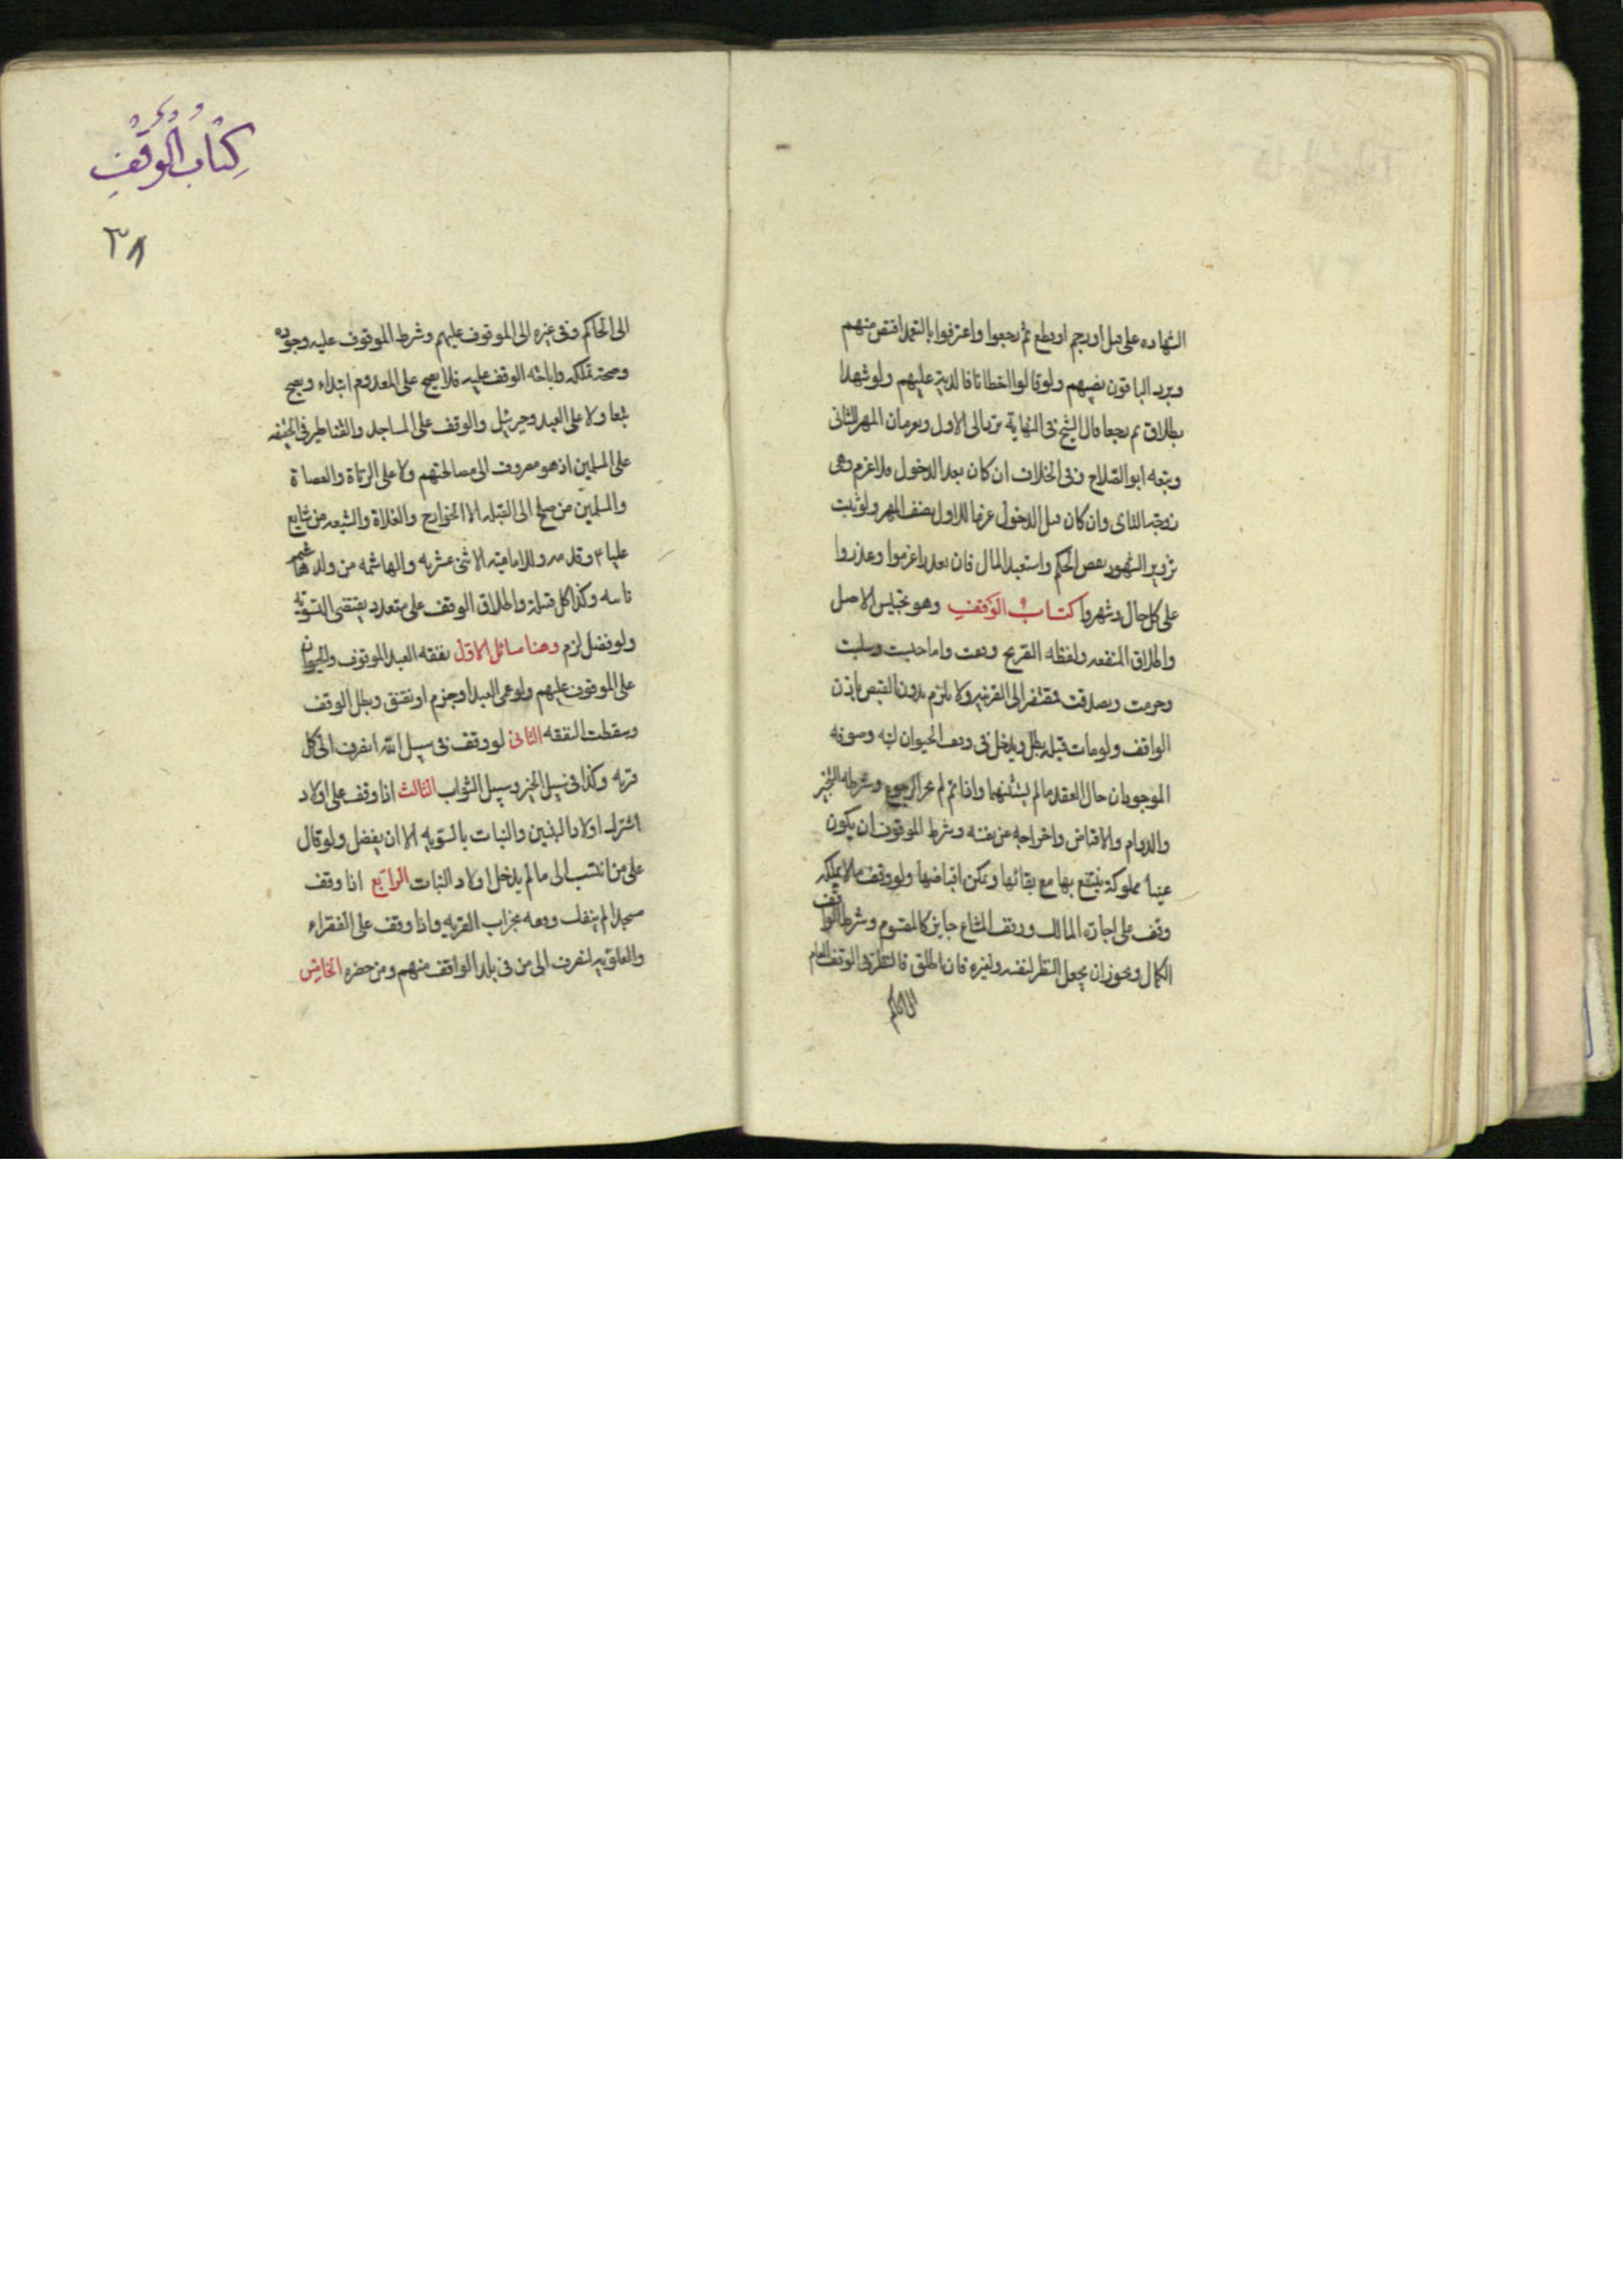 الشهاده على قتل او رجم او قطع ثم رجعوا واعترفوا بالتعمد اقتص منهم
ويرد الباقون نصيبهم ولو قالوا اخطانا فالدية عليهم ولو شهدا
بطلاق ثم رجعا قال الشيخ فى النهاية ترد الى الاول ويغرمان المهر للثانى
وتبعه ابو الصلاح وفى الخلاف ان كان بعد الدخول فلا غرم وهى
زوجة الثانى وان كان قبل الدخول غرما للاول نصف المهر ولو ثبت
تزوير الشهود نقض الحكم واستعيد المال فان تعذر اغرموا وعزروا
على كل حال وشهروا كتاب الوقف وهو تحبيس الاصل
واطلاق المنفعه ولفظه الصريح وقفت واما حبست وسبلت
وحرمت وتصدقت فمفتقر الى القرينه ولا يلزم بدون القبض باذن
الواقف ولو مات قبله بطل ويدخل فى وقف الحيوان لبنه وصوفه
الموجودان حال العقد ما لم يستثنهما واذا تم لم يجز الرجوع وشرطه التنجيز
والدوام والاقباض واخراجه عن نفسه وشرط الموقوف ان يكون
عينا مملوكة ينتفع بها مع بقائها ويمكن اقباضها ولو وقف ما لا يملكه
وقف على اجازه المالك ووقف المشاع جايز كالمقسوم وشرط الواقف
الكمال ويجوز ان يجعل النظر لنفسه ولغيره فان اطلق فالنظر فى الوقف العام
الى الحاكم
كتاب الوقف
٣٨
الى الحاكم وفى غيره الى الموقوف عليهم وشرط الموقوف عليه وجوده
وصحة تملكه واباحة الوقف عليه فلا يصح على المعدوم ابتداء ويصح
تبعا ولا على العبد وجبرئيل والوقف على المساجد والقناطر فى الحقيقه
على المسلمين اذ هو مصروف الى مصالحهم ولا على الزناة والعصاة
والمسلمين من صلى الى القبله الا الخوارج والغلاة والشيعه من شايع
عليا ع وقدمه والاماميه الاثنى عشريه والهاشميه من ولده هاشم
بابيه وكذا كل قبيلة واطلاق الوقف على متعدد يقتضى التسويه
ولو فضل لزم وهنا مسائل الاول نفقه العبد الموقوف والحيوان
على الموقوف عليهم ولو عمى العبد او جذم انعتق وبطل الوقف
وسقطت النفقه الثانى لو وقف فى سبيل الله انصرف الى كل
قربه وكذا فى سبيل الخير وسبيل الثواب الثالث اذا وقف على اولاده
اشترك اولاد البنين والبنات بالسويه الا ان يفضل ولو قال
على من انتسب الى ما لم يدخل اولاد البنات الرابع اذا وقف
مسجدا لم ينفك وقفه بخراب القريه واذا وقف على الفقراء
والعلويه انصرف الى من فى بلد الواقف منهم ومن حضره الخامس